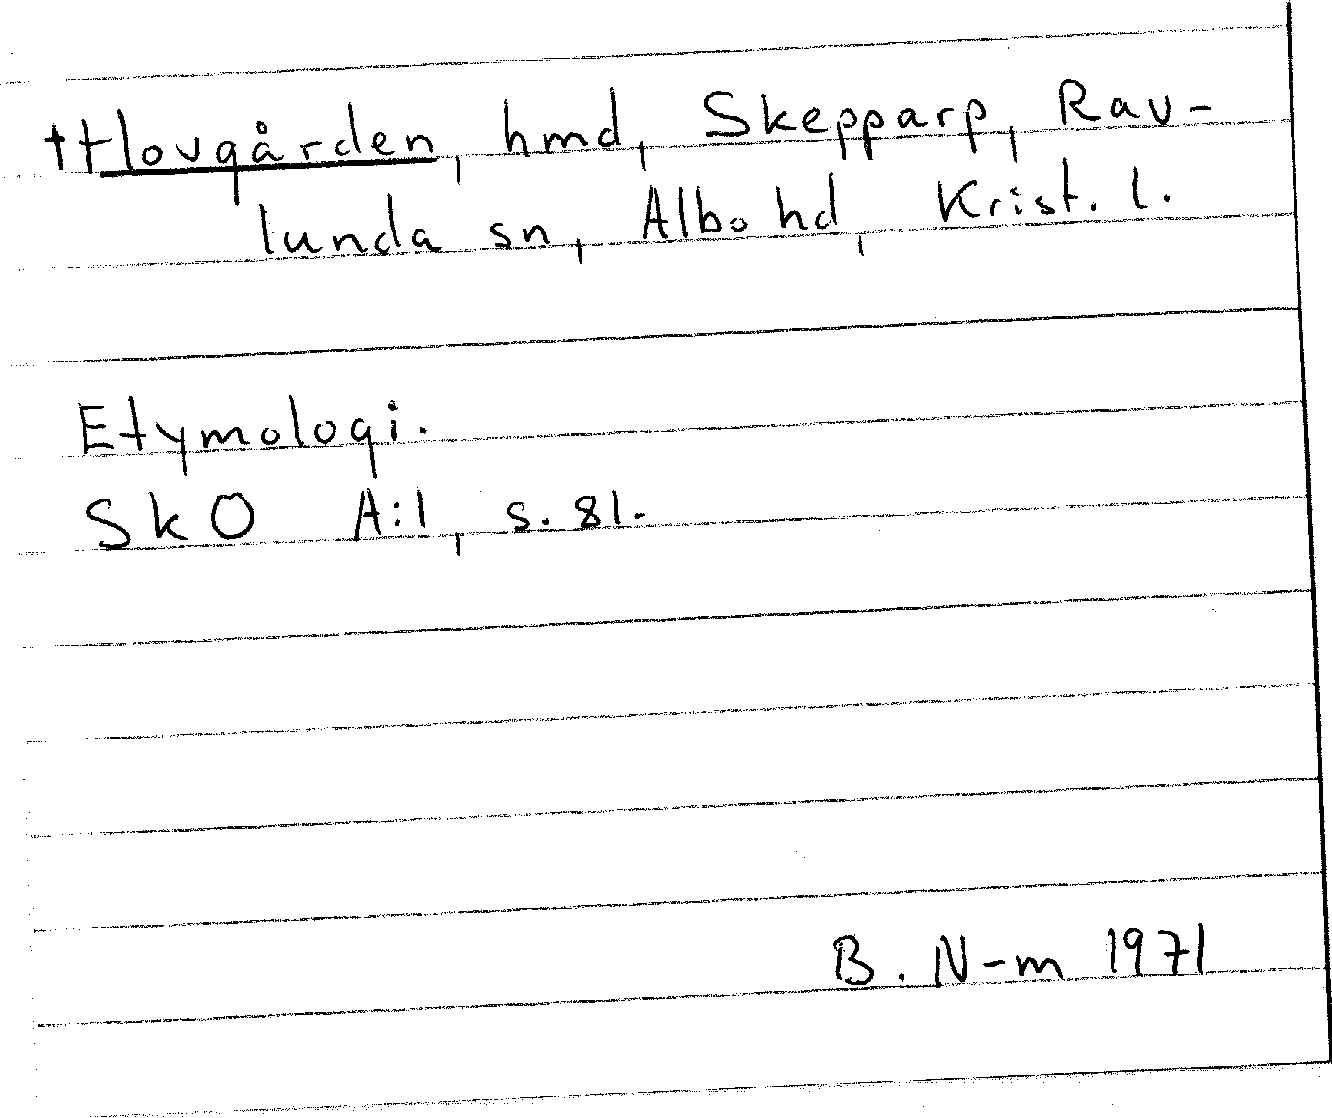 †Hovgården, hmd, Skepparp, Rav-
lunda sn, Albo hd, Krist. l.
Etymologi.
SkO A:1, s. 81.
B. N-m 1971